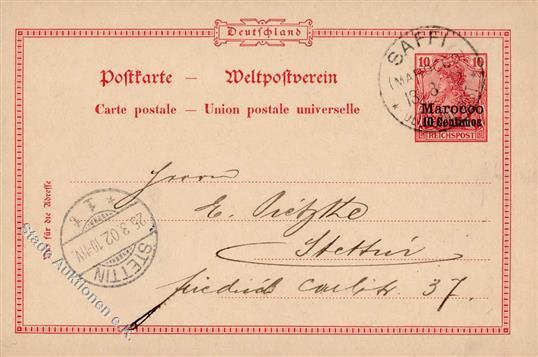 Deutschland
Postkarte – Weltpostverein
Carte postale – Union postale universelle
SAFFI
(MAROCCO)
13 3
10 10
Marocco
10 Centimos
REICHSPOST
Nur für die Adresse
Herrn
E.
Stettin
Friedrich Carlstr. 37.
STETTIN
25.3.02.10-11V.
* 1 *
Stade Auktionen e.K.